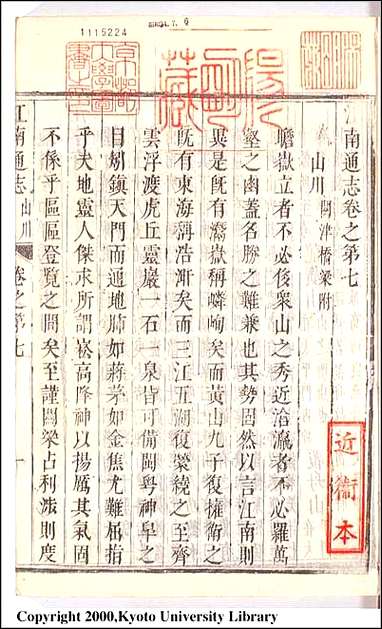 1115224
京都大學圖書之印
江南通志卷之第七
山川 關津橋梁附
瞻嶽立者不必後衆山之秀近洽瀛者不必羅萬
壑之幽蓋名勝之難兼也其勢固然以言江南則
異是旣有灊嶽稱嶙峋矣而黃山九子復擁衛之
旣有東海稱浩淅矣而三江五湖復縈繞之至齊
雲浮渡虎丘靈巖一石一泉皆可備閬粤神皐之
目矧鎮天門而通地肺如蔣茅如金焦尤難屈指
乎夫地靈人傑求所謂崧高降神以揚厲其氣固
不係乎區區登覽之間矣至謹關梁占利涉則度
江南通志 山川 卷之第七 一
近衞本
Copyright 2000,Kyoto University Library